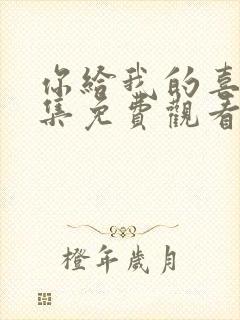 你給我的喜
集免費觀看
橙年歲月